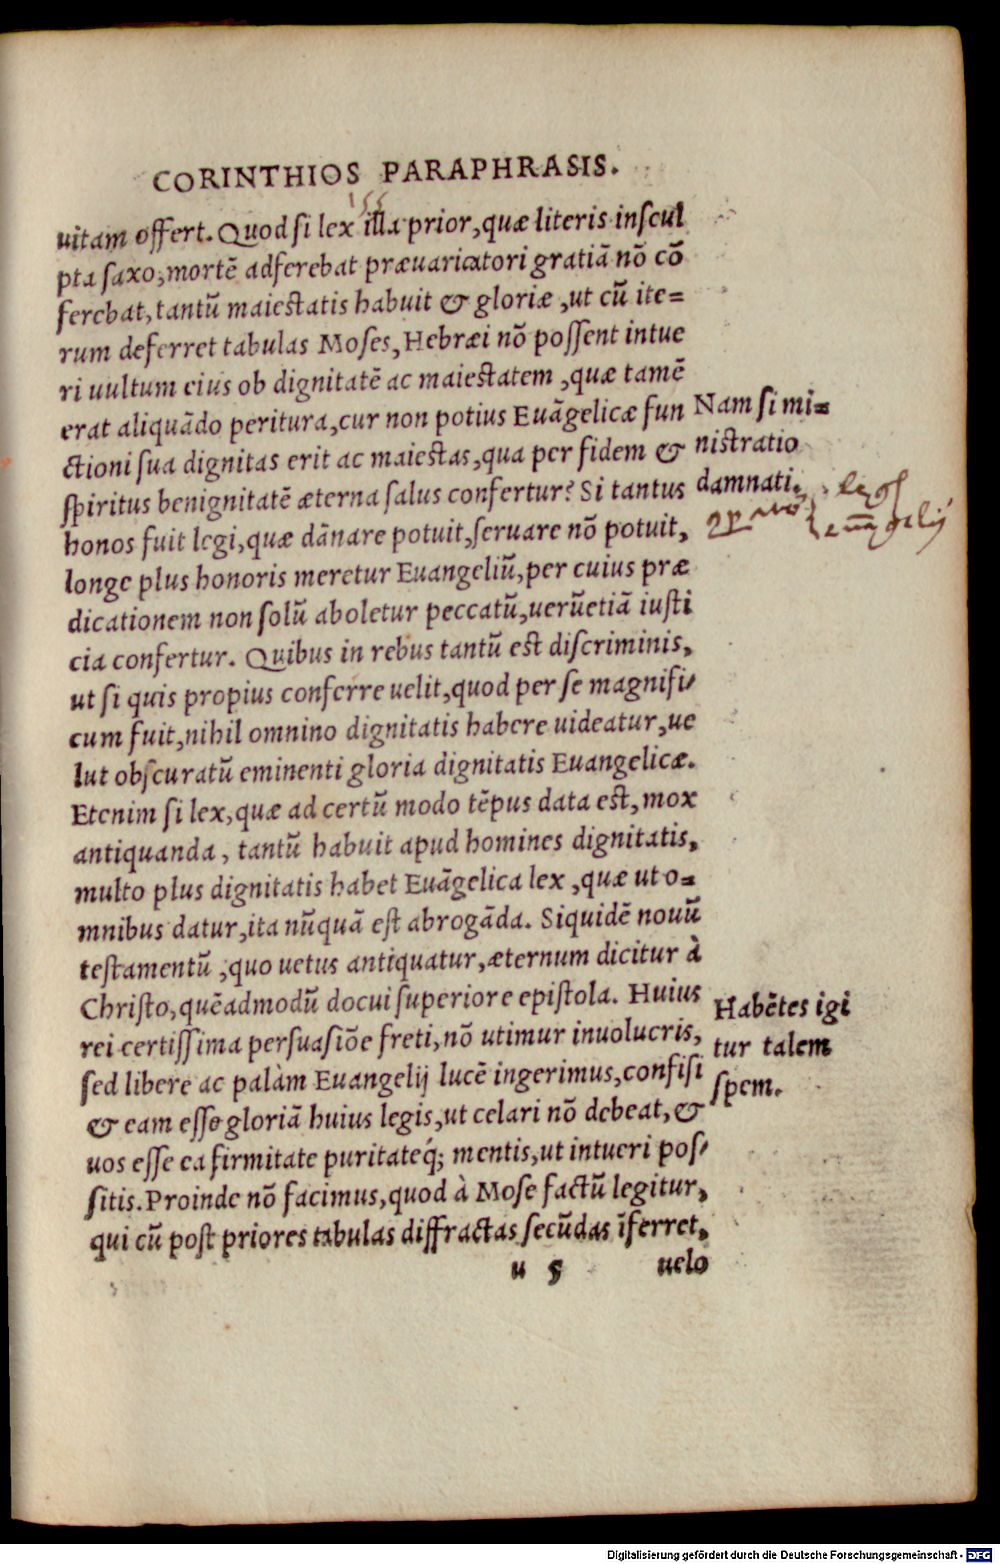 CORINTHIOS PARAPHRASIS.
155
uitam offert. Quod si lex illa prior, quæ literis inscul
pta saxo, mortẽ adferebat præuaricatori gratiã nõ cõ
ferebat, tantũ maiestatis habuit & gloriæ, ut cũ ite=
rum deferret tabulas Moses, Hebræi nõ possent intue
ri uultum eius ob dignitatẽ ac maiestatem, quæ tamẽ
erat aliquãdo peritura, cur non potius Euãgelicæ fun
ctioni sua dignitas erit ac maiestas, qua per fidem &
spiritus benignitatẽ æterna salus confertur? Si tantus
honos fuit legi, quæ dãnare potuit, seruare nõ potuit,
longe plus honoris meretur Euangeliũ, per cuius præ
dicationem non solũ aboletur peccatũ, uerũetiã iusti
cia confertur. Quibus in rebus tantũ est discriminis,
ut si quis propius conferre uelit, quod per se magnifi-
cum fuit, nihil omnino dignitatis habere uideatur, ue
lut obscuratũ eminenti gloria dignitatis Euangelicæ.
Etenim si lex, quæ ad certũ modo tẽpus data est, mox
antiquanda, tantũ habuit apud homines dignitatis,
multo plus dignitatis habet Euãgelica lex, quæ ut o=
mnibus datur, ita nũquã est abrogãda. Siquidẽ nouũ
testamentũ, quo uetus antiquatur, æternum dicitur à
Christo, quẽadmodũ docui superiore epistola. Huius
rei certissima persuasiõe freti, nõ utimur inuolucris,
sed libere ac palàm Euangelij lucẽ ingerimus, confisi
& eam esse gloriã huius legis, ut celari nõ debeat, &
uos esse ea firmitate puritateq́; mentis, ut intueri pos-
sitis. Proinde nõ facimus, quod à Mose factũ legitur,
qui cũ post priores tabulas diffractas secũdas ĩferret,
u 5 uelo
Nam si mi=
nistratio
damnati.
legis
euangelij
Habẽtes igi
tur talem
spem.
Digitalisierung gefördert durch die Deutsche Forschungsgemeinschaft - DFG